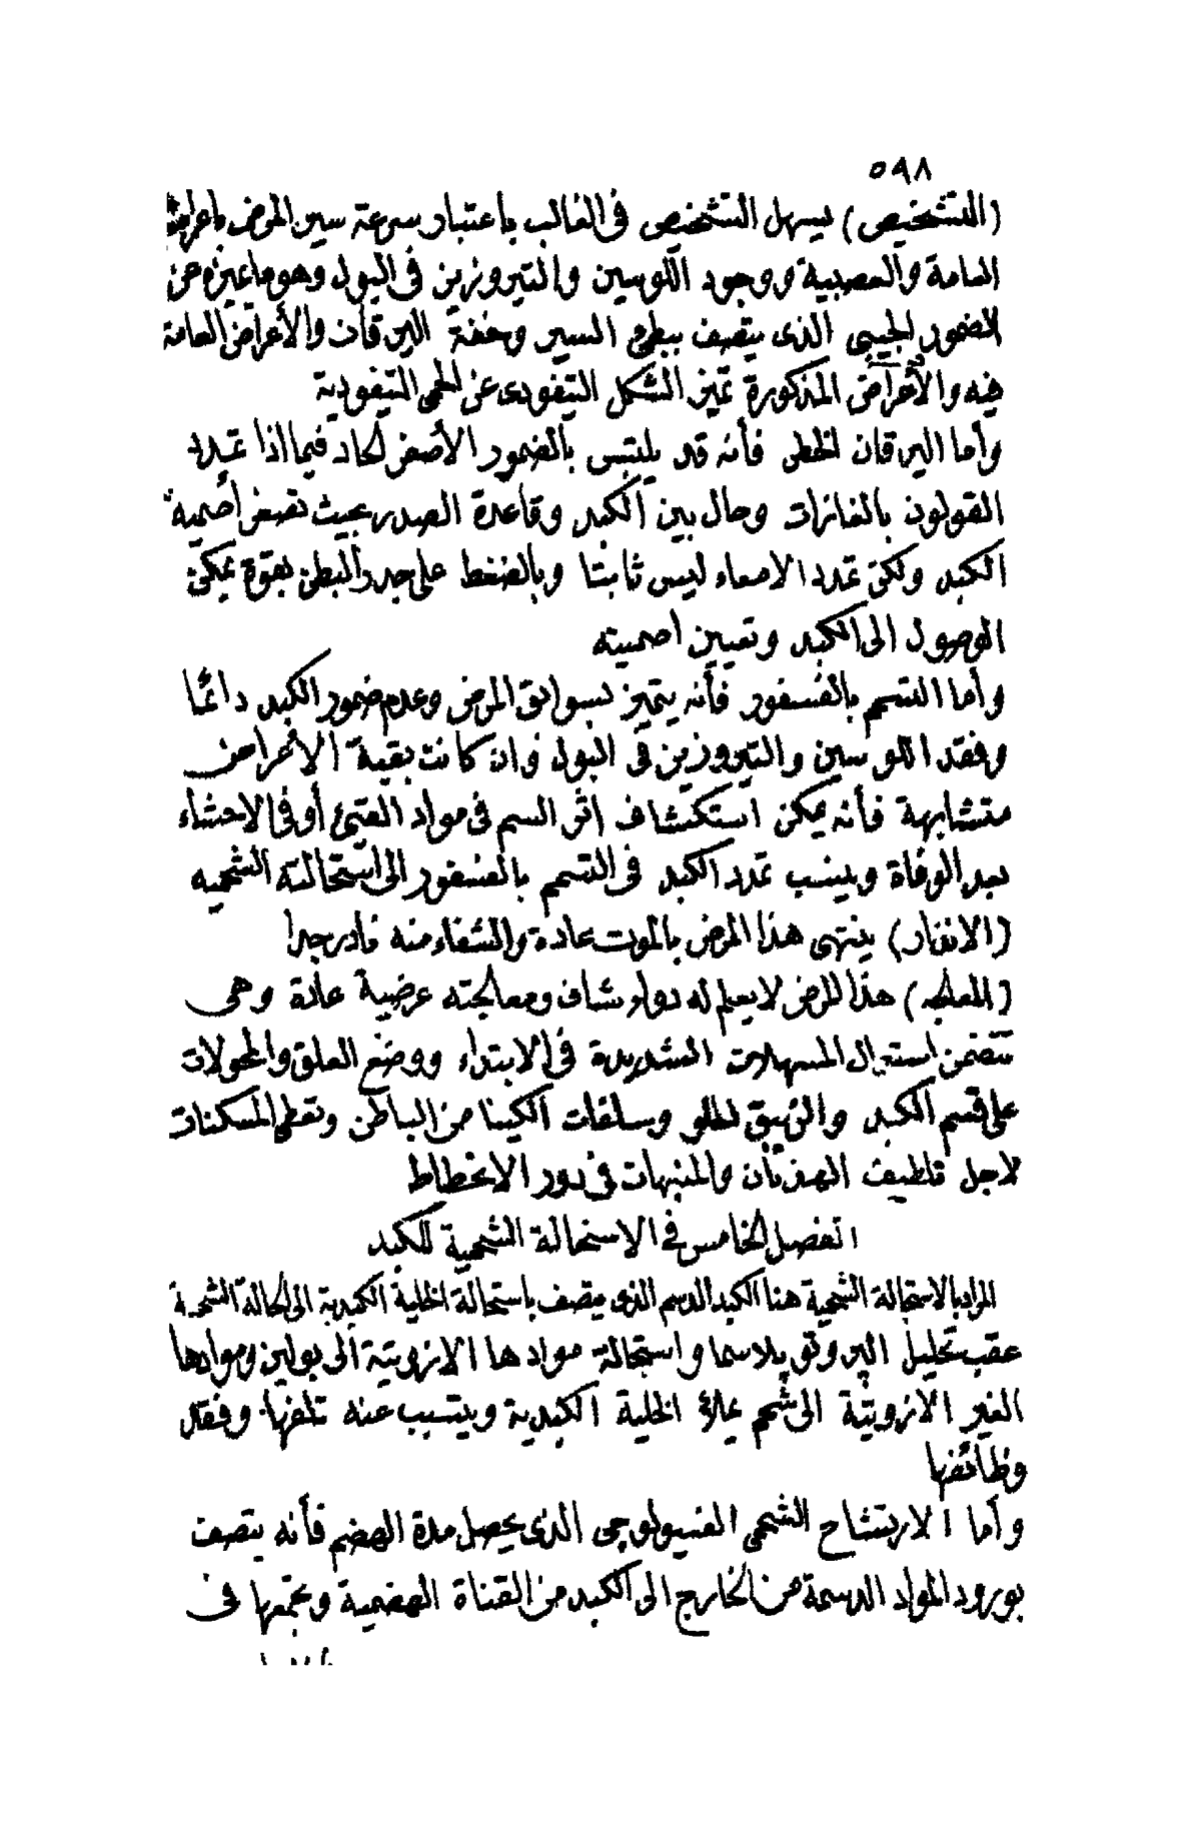 ٥٩٨
(التشخيص) يسهل التشخيص فى الغالب باعتبار سرعة سير المرض وأعراضه
العامة والعصبية ووجود اللوسين والتيروزين فى البول وهو ما يميزه عن
الضمور الجيبى الذى يتصف ببطئ السير وخفة اليرقان والأعراض العامة
فيه والأعراض المذكورة تميز الشكل التيفودى عن الحمى التيفودية
وأما اليرقان الخطر فأنه قد يلتبس بالضمور الأصفر الحاد فيما اذا تمدد
القولون بالغازات وحال بين الكبد وقاعدة الصدر بحيث تصغر أصمية
الكبد ولكن تمدد الامعاء ليس ثابتا وبالضغط على جدر البطن بقوة يمكن
الوصول الى الكبد وتعيين اصميته
وأما التسمم بالفسفور فأنه يتميز بسوابق المرض وعدم ضمور الكبد دائما
وفقد اللوسين والتيروزين فى البول وان كانت بقية الاعراض
متشابهة فأنه يمكن استكشاف اثر السم فى مواد القيئ أو فى الاحشاء
بعد الوفاة وينسب تمدد الكبد فى التسمم بالفسفور الى استحالته الشحميه
(الانذار) ينتهى هذا المرض بالموت عادة والشفاء منه نادر جدا
(المعالجه) هذا المرض لا يعلم له دواء شاف ومعالجته عرضية عادة وهى
تتضمن استعمال المسهلات الشديدة فى الابتداء ووضع العلق والمحولات
على قسم الكبد والزيبق الحلو وسلفات الكينا من الباطن وتعطى المسكنات
لاجل تلطيف الهذيان والمنبهات فى دور الانحطاط
الفصل الخامس فى الاستحالة الشحمية للكبد
المراد بالاستحالة الشحمية هنا الكبد الدسم الذى يتصف باستحالة الخلية الكبدية الى الحالة الشحمية
عقب تحليل البروتوپلاسما واستحالة موادها الازوتية الى بولين وموادها
الغير الازوتية الى شحم يملأ الخلية الكبدية ويتسبب عنه تلفها وفقد
وظائفها
وأما الارتشاح الشحمى الفسيولوجى الذى يحصل مدة الهضم فأنه يتصف
بورود المواد الدسمة من الخارج الى الكبد من القناة الهضمية وتجمعها فى